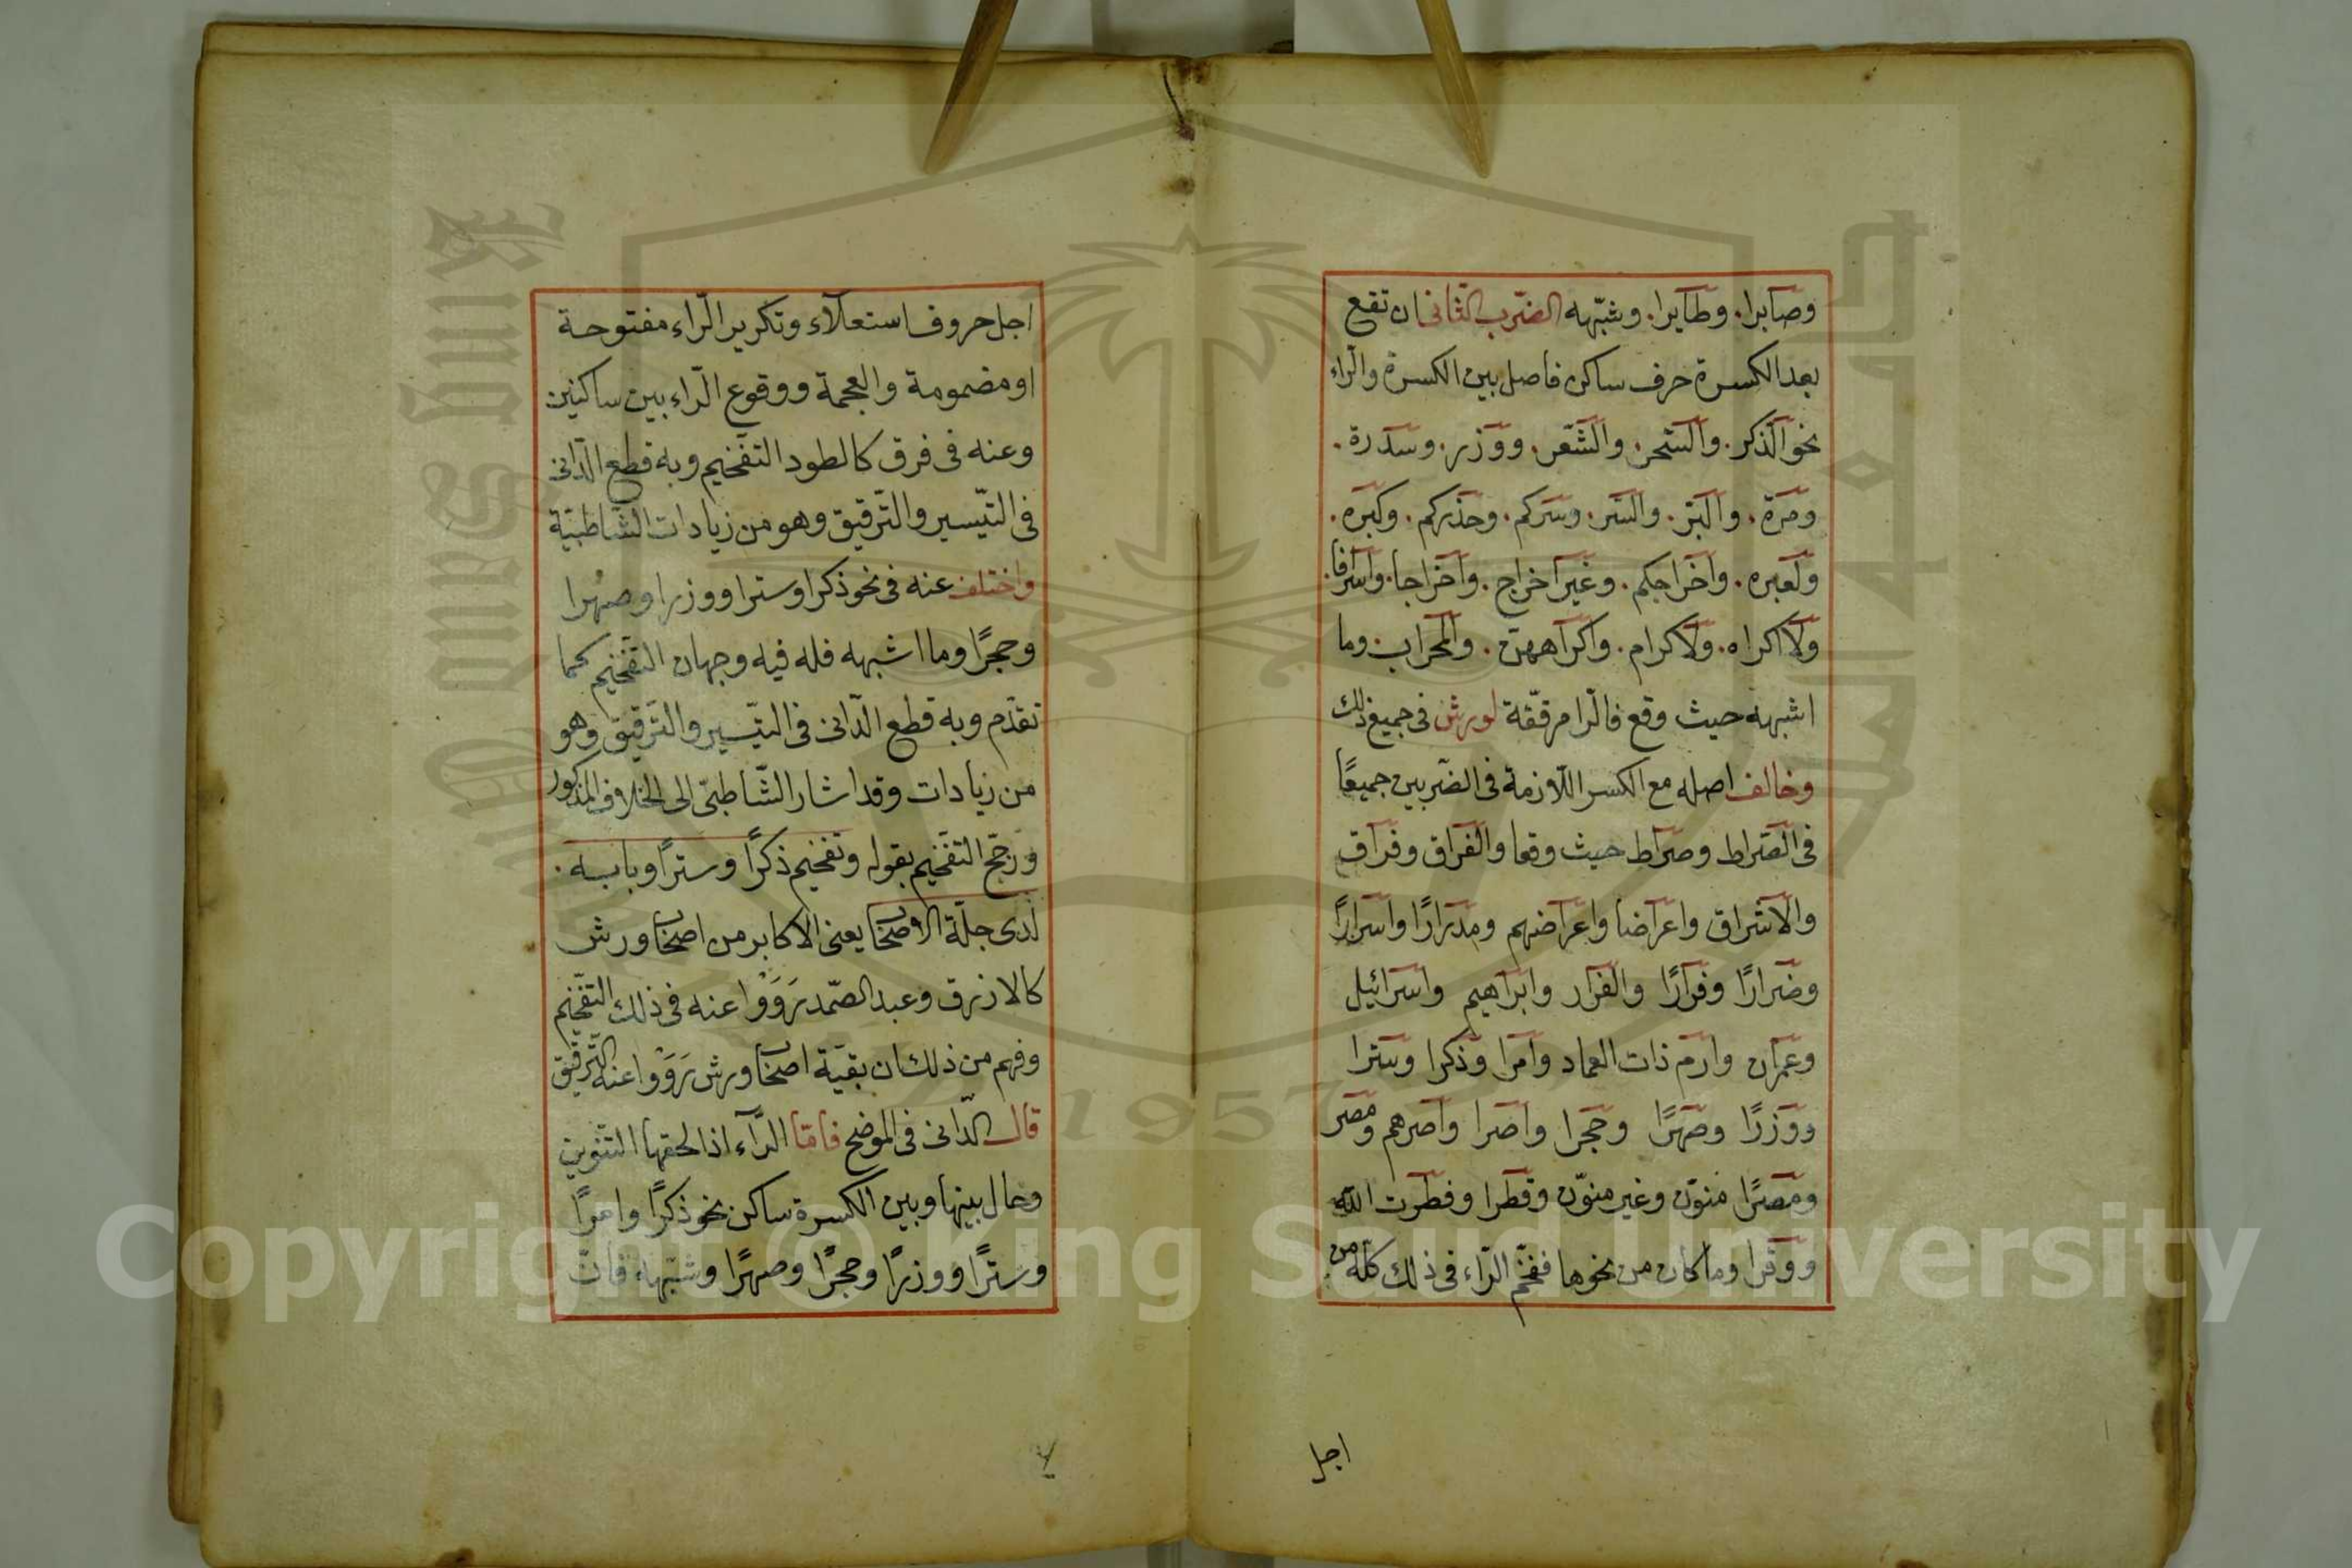 وصابرا. وطايرا. وشبّهه الضرب الثانى ان تقع
بعد الكسرة حرف ساكن فاصل بين الكسرة والرّاء
نحو الذكر. والسّحر. والشّعر. ووزر. وسدرة.
ومرة. والبرّ. والسّر. وسرّكم. وحذركم. وكبره.
ولعبره. واخراجكم. وغير اخراج. واخراجا. واسرافا.
ولا اكراه. ولاكرام. واكراههنّ. والمحراب وما
اشبهه حيث وقع فالرا مرقّقة لورش فى جميع ذلك
وخالف اصله مع الكسر اللّازمة فى الضّربين جميعًا
فى الصّراط وصراط حيث وقعا والفراق وفراق
والاشراق واعراضا واعراضهم ومدرارًا واسرارًا
وضرارًا وفرارًا والفرار وابراهيم واسرائيل
وعمران وارم ذات العماد وامرا وذكرا وسترا
ووزرًا وصهرًا وحجرا واصرا واصرهم ومصر
ومصرًا منوّن وغير منوّن وقطرا وفطرت الله
ووقرا وما كان من نحوها ففخّم الرّاء فى ذلك كلّه من
اجل
اجل حروف استعلآء وتكرير الرّاء مفتوحة
او مضمومة والعجمة ووقوع الرّاء بين ساكنين
وعنه فى فرق كالطود التفخيم وبه قطع الدّانى
فى التيّسير والتّرقيق وهو من زيادات الشّاطبيّة
واختلف عنه فى نحو ذكرا وسترا ووزرا وصهرا
وحجرًا وما اشبهه فله فيه وجهان التفخيم كما
تقدّم وبه قطع الدّانى فى التيّسير والتّرقيق وهو
من زيادات وقد اشار الشّاطبىّ الى الخلاف المذكور
ورجّح التفخيم بقوله وتفخيم ذكرًا وسترًا وبابه.
لدى جلّة الاصحاب يعنى الاكابر من اصحاب ورش
كالازرق وعبد الصّمد رَوَوْا عنه فى ذلك التفخيم
وفهم من ذلك ان بقيّة اصحاب ورش رَوَوْا عنه التّرقيق
قال الدّانى فى الموضح فامّا الرّآء اذا لحقها التنوين
وحال بينها وبين الكسرة ساكن نحو ذكرًا وامرًا
وسترًا ووزرًا وحجرًا وصهرًا وشبّهه فانّ